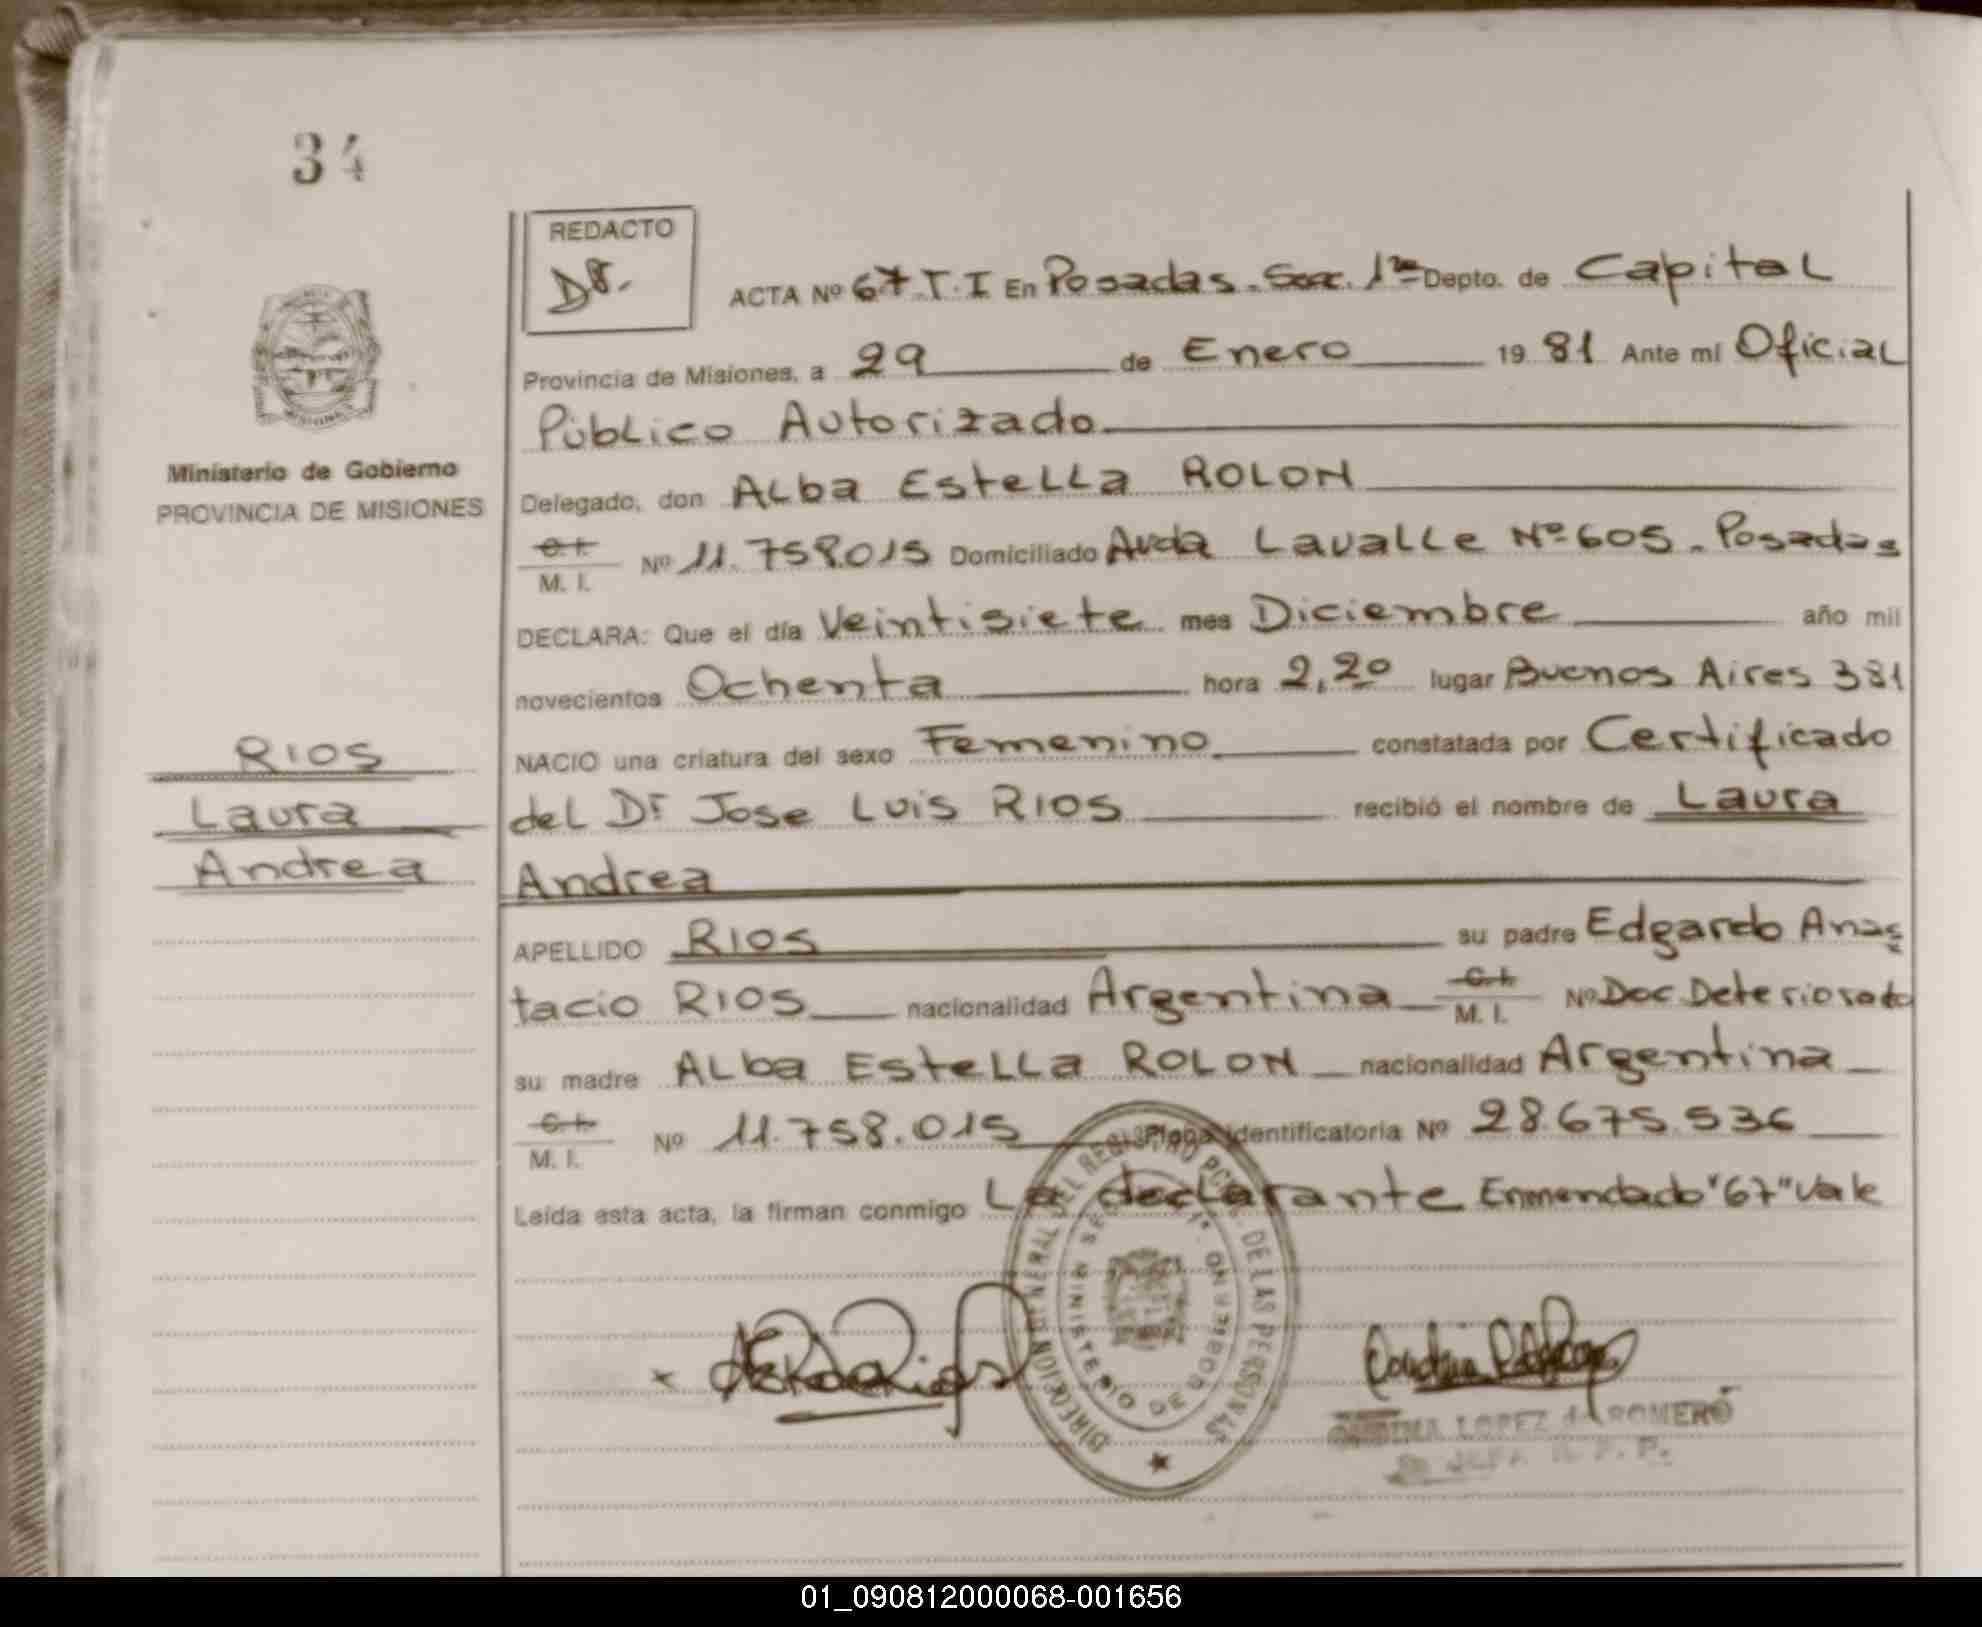 34
REDACTO
Ds.
ACTA Nº 67 T. I En Posadas. Secc. 1ª Depto. de Capital
Provincia de Misiones, a 29 de Enero 19 81 Ante mí Oficial
Público Autorizado
Delegado, don Alba Estella ROLON
C. I.
M. I. Nº 11.758.015 Domiciliado Avda Lavalle Nº 605. Posadas
DECLARA: Que el día Veintisiete mes Diciembre año mil
novecientos Ochenta hora 2,20 lugar Buenos Aires 381
NACIO una criatura del sexo Femenino constatada por Certificado
del Dr Jose Luis RIOS recibió el nombre de Laura
Andrea
APELLIDO RIOS su padre Edgardo Anas
tacio RIOS nacionalidad Argentina C. I.
M. I. Nº Doc. Deteriorado
su madre Alba Estella ROLON nacionalidad Argentina
C. I.
M. I. Nº 11.758.015 identificatoria Nº 28.675.536
Leída esta acta, la firman conmigo La declarante Enmendado "67" Vale
Ministerio de Gobierno
PROVINCIA DE MISIONES
RIOS
Laura
Andrea
DIRECCION GENERAL DEL REGISTRO PCIAL. DE LAS PERSONAS
MINISTERIO DE GOBIERNO
LOPEZ de ROMERO
01_090812000068-001656